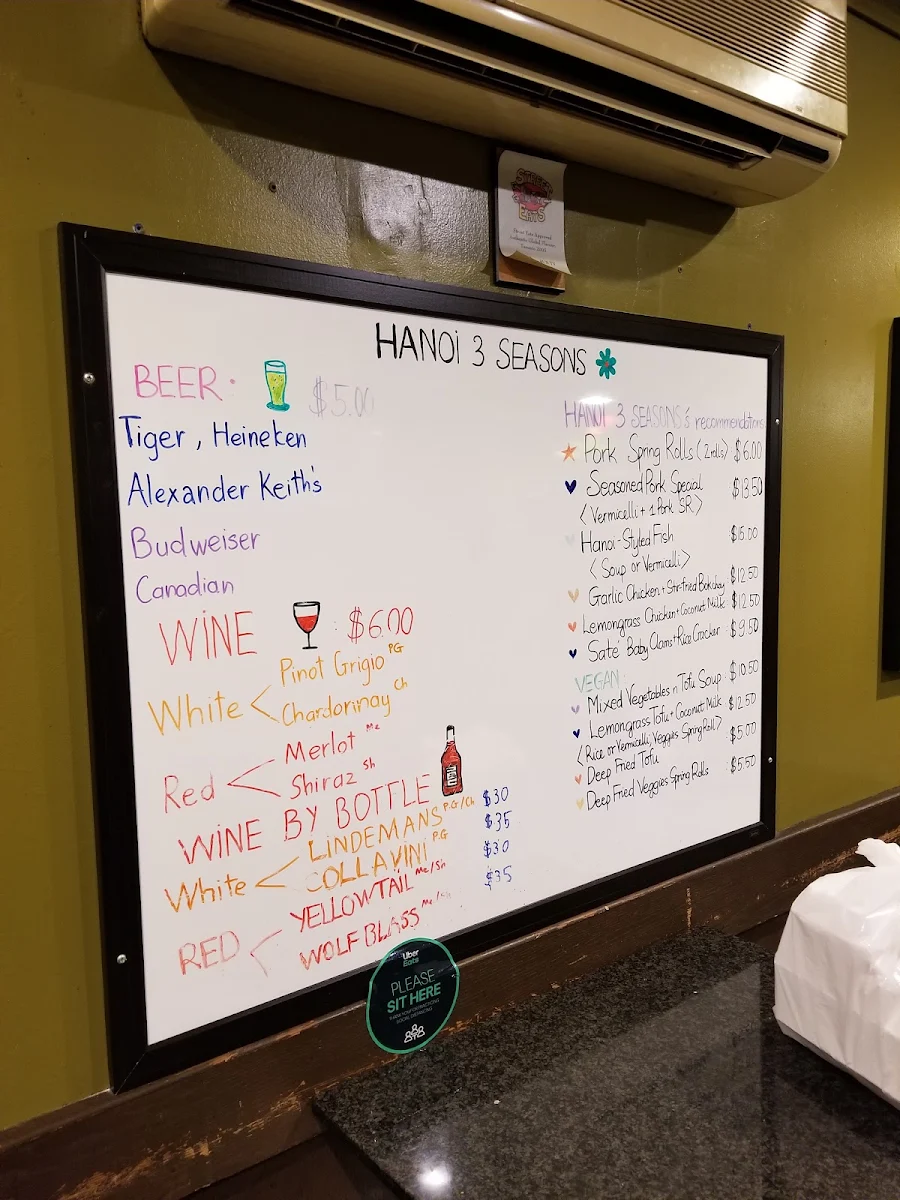 STREET
EATS
HANOI 3 SEASONS
BEER: $5.00
Tiger, Heineken
Alexander Keith's
Budweiser
Canadian
WINE : $6.00
White < Pinot Grigio PG
Chardorinay Ch
Red < Merlot Me
Shiraz Sh
WINE BY BOTFLE
White < LINDEMANS P.G/Ch $30
COLLAVINI P.G $35
RED < YELLOWTAIL Me/Sh $30
WOLF BLASS Me/Sh $35
HANOI 3 SEASONS's recommendations
Pork Spring Rolls (2 rolls) $6.00
Seasoned Pork Special $13.50
<Vermicelli + 1 Pork SR>
Hanoi-Styled Fish $15.00
<Soup or Vermicelli>
Garlic Chicken + Stir-fried Bokchoy $12.50
Lemongrass Chicken + Coconut Milk $12.50
Saté Baby Clams + Rice Cracker $9.50
VEGAN:
Mixed Vegetables n Tofu Soup $10.50
Lemongrass Tofu + Coconut Milk $12.50
<Rice or Vermicelli, Veggies Spring Roll>
Deep Fried Tofu $5.00
Deep Fried Veggies Spring Rolls $5.50
Uber
Eats
PLEASE
SIT HERE
SOCIAL DISTANCING